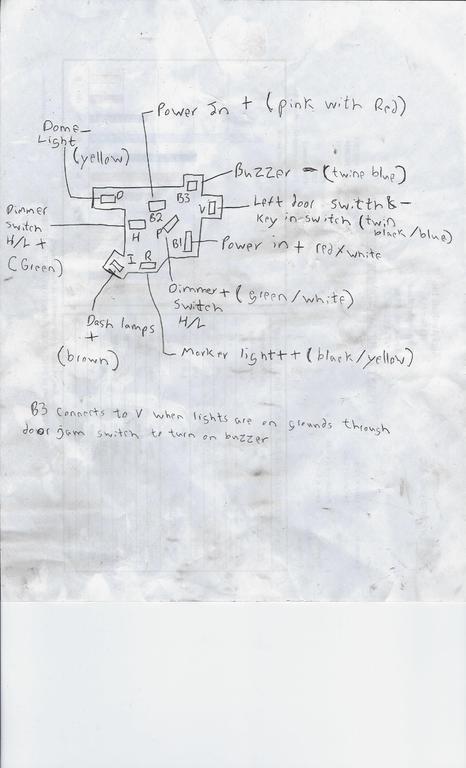 Power In + (pink with Red)
Dome-
Light
(yellow)
Buzzer - (twine blue)
D
B3
B2
V
Left door switth & -
key in-switch (twin
black/blue)
Dimmer
switch
H/L +
(Green)
H
P
B1
Power in + red/white
I
R
Dimmer + (green/white)
switch
H/L
Dash lamps
+
(brown)
Marker light ++ (black/yellow)
B3 connects to V when lights are on grounds through
door jam switch to turn on buzzer